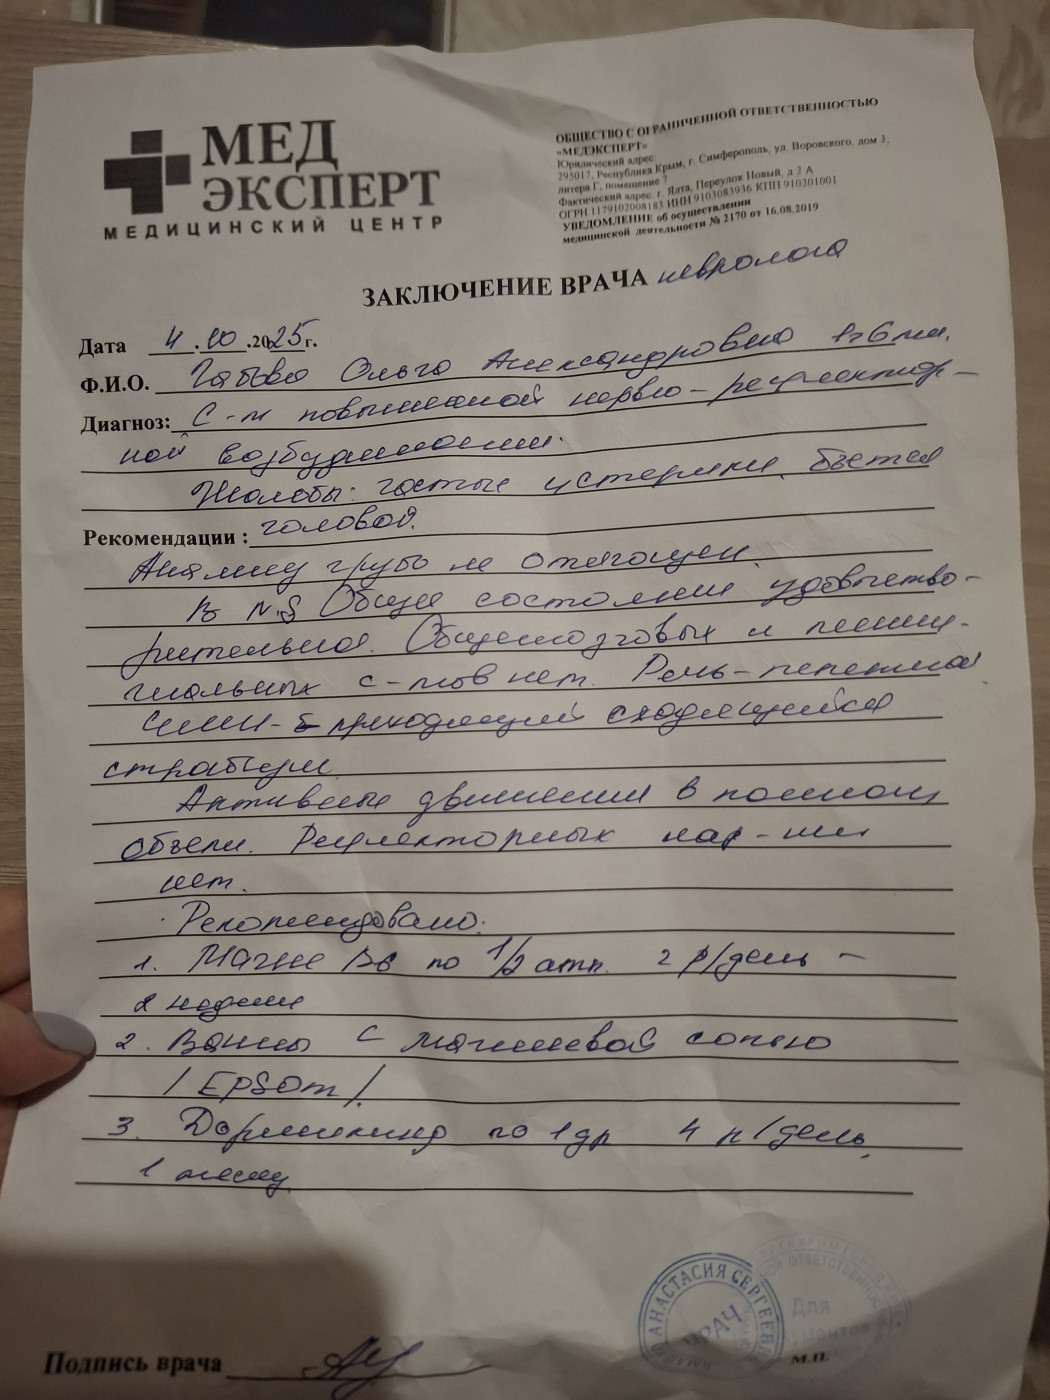 МЕД
ЭКСПЕРТ
МЕДИЦИНСКИЙ ЦЕНТР
ОБЩЕСТВО С ОГРАНИЧЕННОЙ ОТВЕТСТВЕННОСТЬЮ
«МЕДЭКСПЕРТ»
Юридический адрес
295017, Республика Крым, г. Симферополь, ул. Воровского, дом 3,
литера Г, помещение 7
Фактический адрес: г. Ялта, Переулок Новый, д 2 А
ОГРН 1179102008183 ИНН 9103083936 КПП 910201001
УВЕДОМЛЕНИЕ об осуществлении
медицинской деятельности № 2170 от 16.08.2019
ЗАКЛЮЧЕНИЕ ВРАЧА невролога
Дата 4.10.2025г.
Ф.И.О. Ольга Александровна 1г6м.
Диагноз: С-м повышенной нервно-рефлектор-
ной возбудимости.
Жалобы: частые истерики, бьется
Рекомендации: головой.
Анамнез грубо не отягощен.
В N.S Общее состояние удовлетво-
рительное. Общемозговых и менин-
гиальных с-мов нет. Речь-
ЧМН- приходящий сходящийся
страбизм.
Активные движения в полном
объеме. Рефлекторных нар-ний
нет.
Рекомендовано:
1. Магне В6 по 1/2 амп. 2 р/день -
2 недели
2. Ванны с магниевой солью
/EPSOm/.
3. Дормикинд по 1 др 4 р/день,
1 месяц.
Подпись врача
АНАСТАСИЯ СЕРГЕЕВНА
ВРАЧ
Для
М.П.